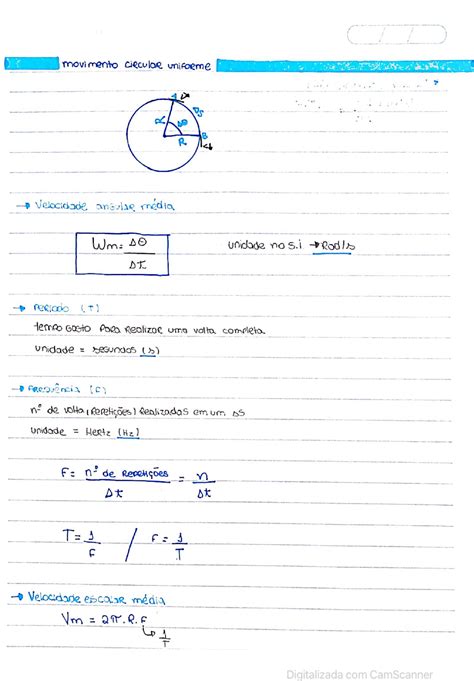 movimento circular uniforme
A
Δs
R
Δθ
R
B
→ Velocidade angular média
Wm = Δθ / Δt
unidade no s.i → Rad/s
→ Período (T)
tempo gasto para realizar uma volta completa.
unidade = segundos (s)
→ Frequência (F)
nº de volta (repetições) realizadas em um Δs
unidade = Hertz (Hz)
F = nº de repetições / Δt = n / Δt
T = 1 / F / F = 1 / T
→ Velocidade escalar média
Vm = 2π.R.F
↳ 1 / T
Digitalizada com CamScanner